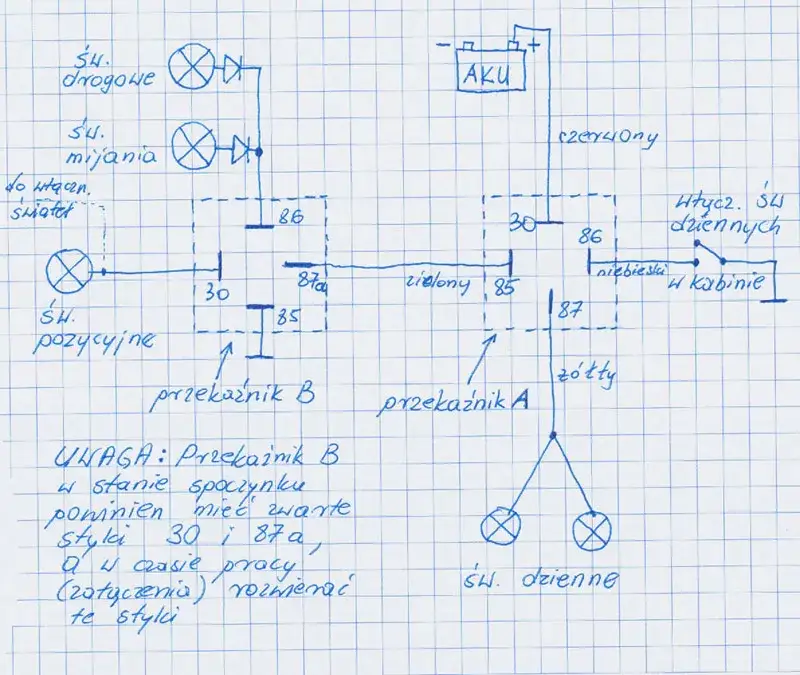 św.
drogowe
św.
mijania
do włączn.
świateł
św.
pozycyjne
86
30
87a
85
przekaźnik B
zielony
- +
AKU
czerwony
30
86
85
87
przekaźnik A
niebieski
włącz. św
dziennych
w kabinie
żółty
św. dzienne
UWAGA: Przekaźnik B
w stanie spoczynku
powinien mieć zwarte
styki 30 i 87a,
a w czasie pracy
(załączenia) rozwierać
te styki